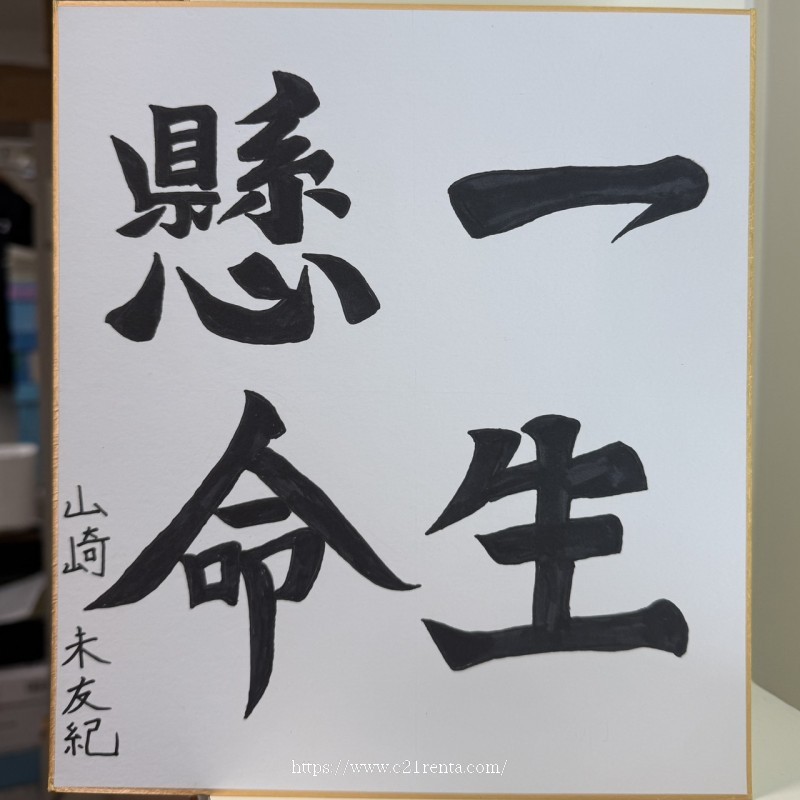 一生
懸命
山崎 未友紀
https://www.c21renta.com/